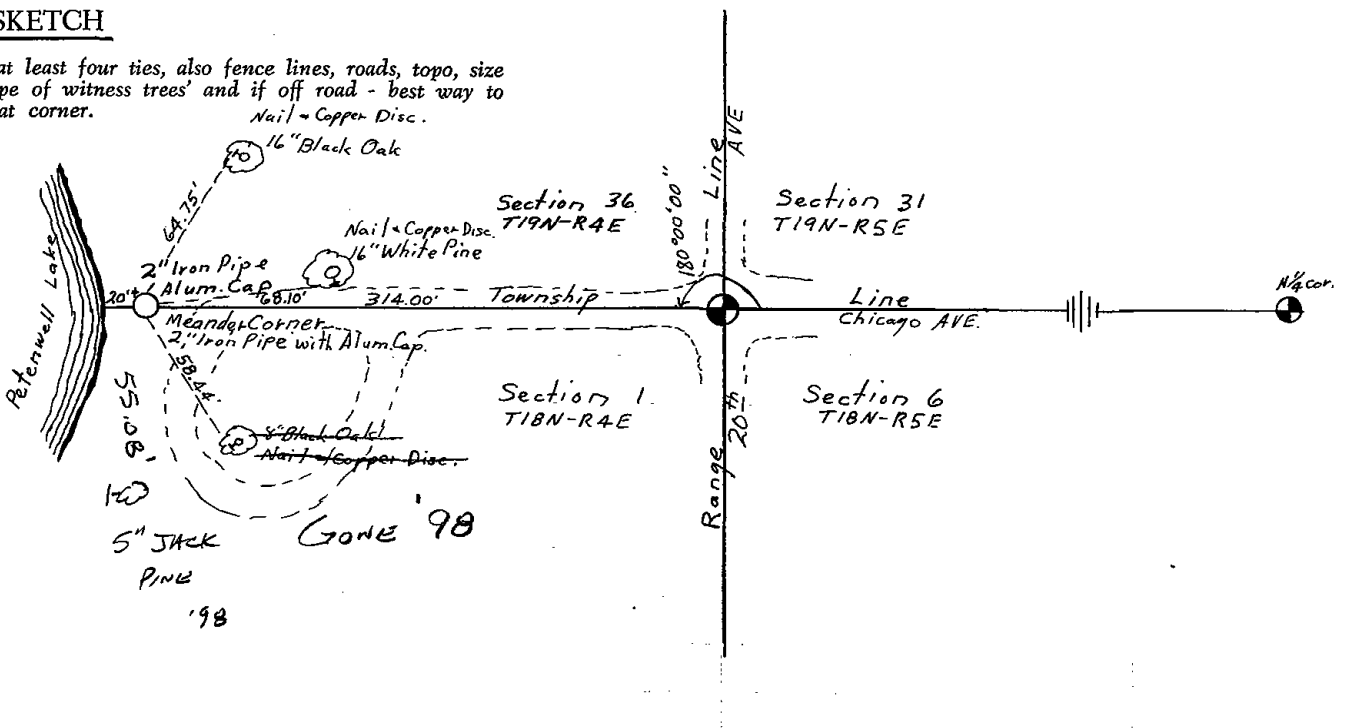 SKETCH
at least four ties, also fence lines, roads, topo, size
pe of witness trees' and if off road - best way to
at corner.
Nail + Copper Disc.
16" Black Oak
64.75'
Section 36
T19N-R4E
Line
AVE
180°00'00"
Section 31
T19N-R5E
Nail + Copper Disc.
16" White Pine
Petenwell Lake
2" Iron Pipe
Alum. Cap
20'±
68.10'
314.00'
Township
Line
Chicago AVE.
N¼ cor.
Meander Corner
2" Iron Pipe with Alum. Cap.
58.44'
55.08'
Section 1
T18N-R4E
Section 6
T18N-R5E
Range
20th
8" Black Oak
Nail + Copper Disc.
GONE '98
5" JACK
PINE
'98